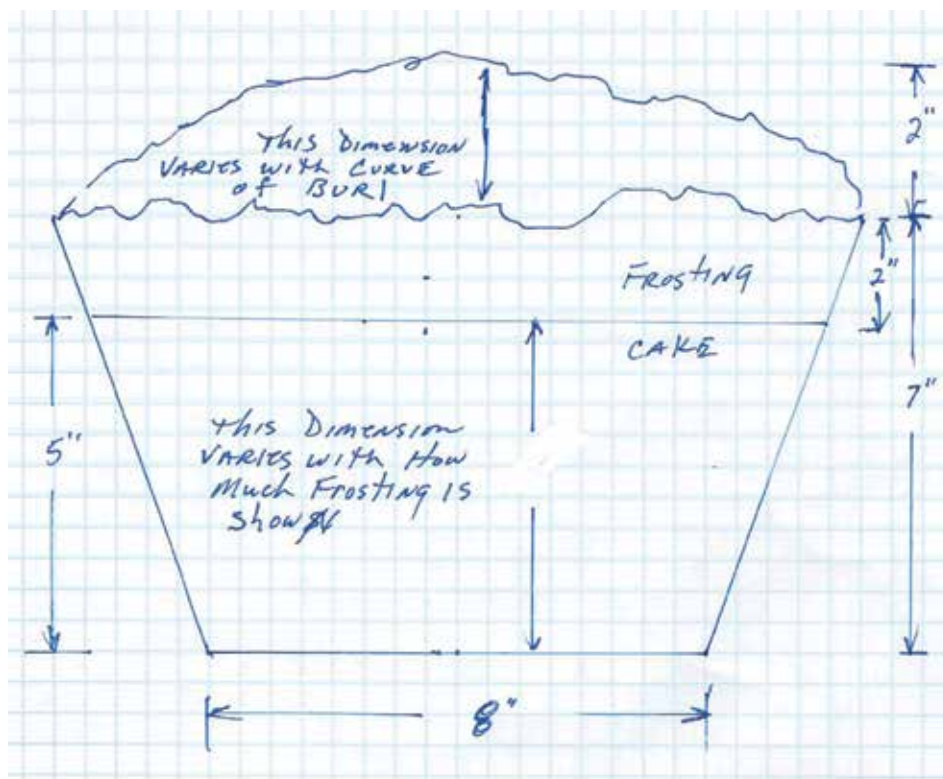 2"
This Dimension
VARIES with CURVE
of BURl
2"
FROSTING
CAKE
7"
5"
This Dimension
VARIES with How
Much Frosting is
Shown
8"